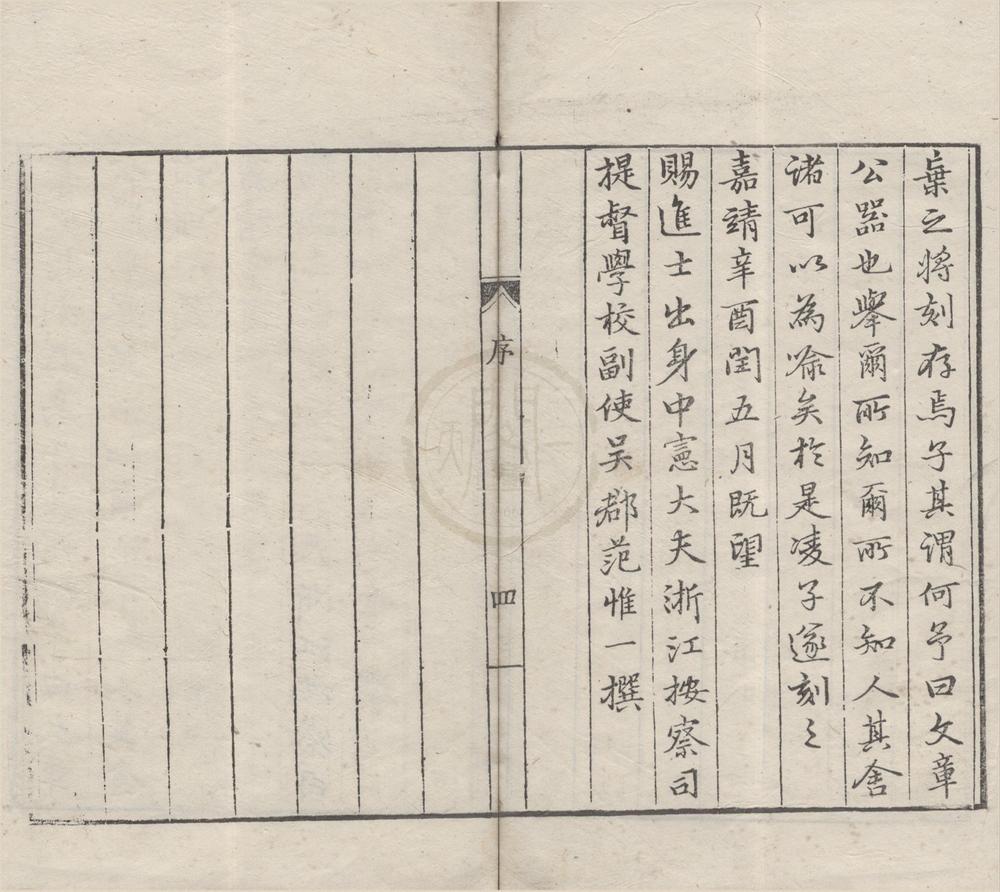 棄之將刻存焉子其謂何予曰文章
公器也擧爾所知爾所不知人其舍
諸可以為喻矣於是凌子遂刻之
嘉靖辛酉閏五月既望
賜進士出身中憲大夫浙江按察司
提督學校副使吴郡范惟一撰
序
四